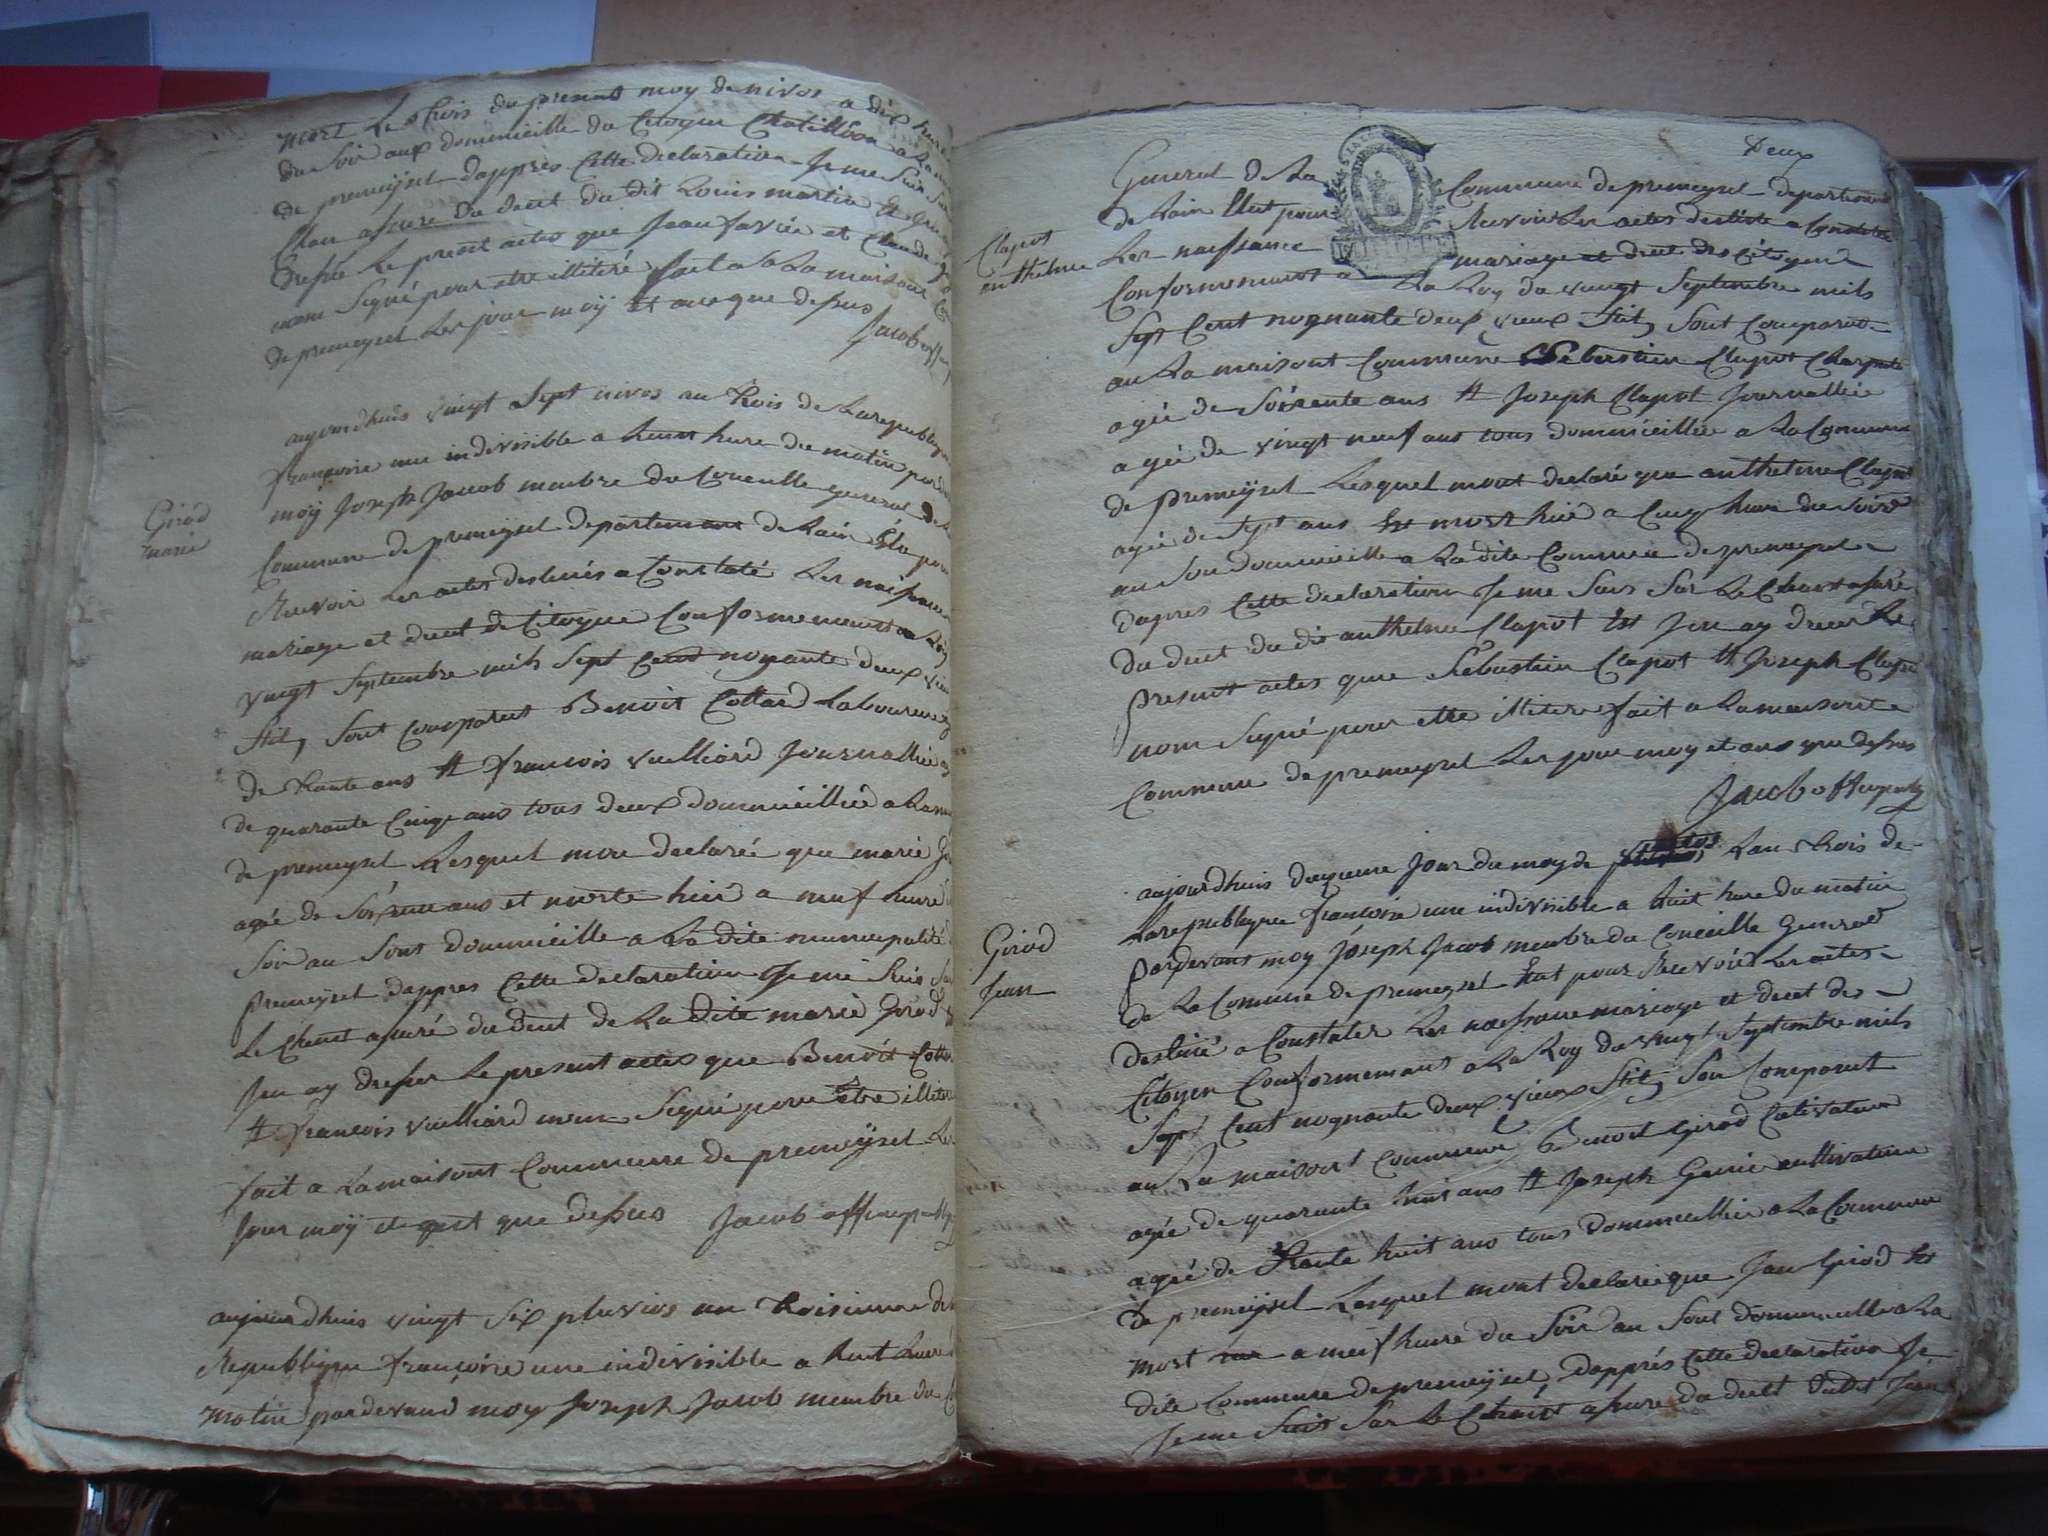 mort Le trois du present moy de nivos a dix hure
du Soir aux dommicille du Citoyen Chatillion a La
de premeysel dapprès Cette declaration Je me Suis Sur
Chau assure du decet du dit Louis martin Et
dresse Le presnt actes que Jean favié et Claude
nom Signé pour etre illiteré fait a La maisont
de premeysel Les jour moÿ Et ans que dessus
Jacob off
aujourdhuis vingt Sept nivos an trois de Larepublique
françoise une indivisible a heuit hure du matin pardevant
moÿ Joseph Jacob membre du Conceille general de
Girod
marie
Commune de premeysel departement de Lain Elu pour
Recevoir Les actes destinés a Constaté Les naissance
mariage et decet de Citoyen Conformement a Loy
vingt Septembre mils Sept Cent nonante deux vieux
Stil, Sont Comparut Benoit Cottard Laboureur
de trante ans Et francois vuilliard Journallié
de quarante Cinqe ans tous deux dommicillié a La
de premeysel Lesquel mon declaré que marie
agée de Soisente ans et morte hier a neuf hure
Soir au Sont dommicille a La dite municipalité
Premeysel dappres Cette declaration Je me Suis Sur
Le Chant assuré du decet de La dite marie Girod
Jen ay dresser Le present actes que Benoit Cotta
Et francois vuilliard nom Signé pour être illitere
fait a Lamaisont Commune de premeÿsel Les
Jour moÿ et que dessus Jacob off publique
aujourdhuis vingt Six pluvios an troisieme de La
Republique françoise une indivisible a huit hure
matin pardevand moÿ Joseph Jacob membre du C
Deux
General de La Commune de premeysel departement
de Lain Elut pour Recevoir Les actes destiné a Constaté
Clapot
anthelme
Les naissance mariage et decet des Citoyens
Conformement a La Loy du vingt Septembre mils
Sept Cent nognante deux vieux Stil, Sont Comparut
au La maisont Commune Sebastien Clapot Charpentie
agée de Soixente ans Et Joseph Clapot Journallié
agée de vingt neuf ans tous dommicillié a La Commune
de Premeysel Lesquel mont declaré que anthelme Clapot
agée de Sept ans Est mort hier a Cinq hure du Soir
au Son dommicille a La dite Commune de premeysel
dapres Cette declaration Je me Suis Sur Le Chant assuré
du decet du dit anthelme Clapot Et Jen ay dresser Le
present actes que Sebastien Clapot Et Joseph Clapot
nom Signé pour etre illitere fait a La maisont
Commune de premeysel Les jour moy et ans que dessus
Jacob off publiq
aujourdhuis deuxieme Jour du moy de Lan trois de
Larepublique francoise une indivisible a huit hure du matin
Girod
Jean
pardevant moy Joseph Jacob membre du Conceille General
de La Commune de premeysel Elut pour Recevoir Les actes
destiné a Constater Les naissance mariage et decet des
Citoyen Conformement a La Loy du vingt Septembre mils
Sept Cent nognante deux vieux Stil, Son Comparut
au La maisont Commune Benoit Girod Cultivateur
agée de quarante huit ans Et Joseph Genin cultivateur
agée de trante huit ans tous dommicillié a La Commune
de premeysel Lesquel mont declaré que Jan Girod Est
mort a neuf hure du Soir au Sont dommicille a La
dite Commune de premeysel, dapprés Cette declaration Je
Je me Suis Sur Le Chant assure du decet dudit Jean